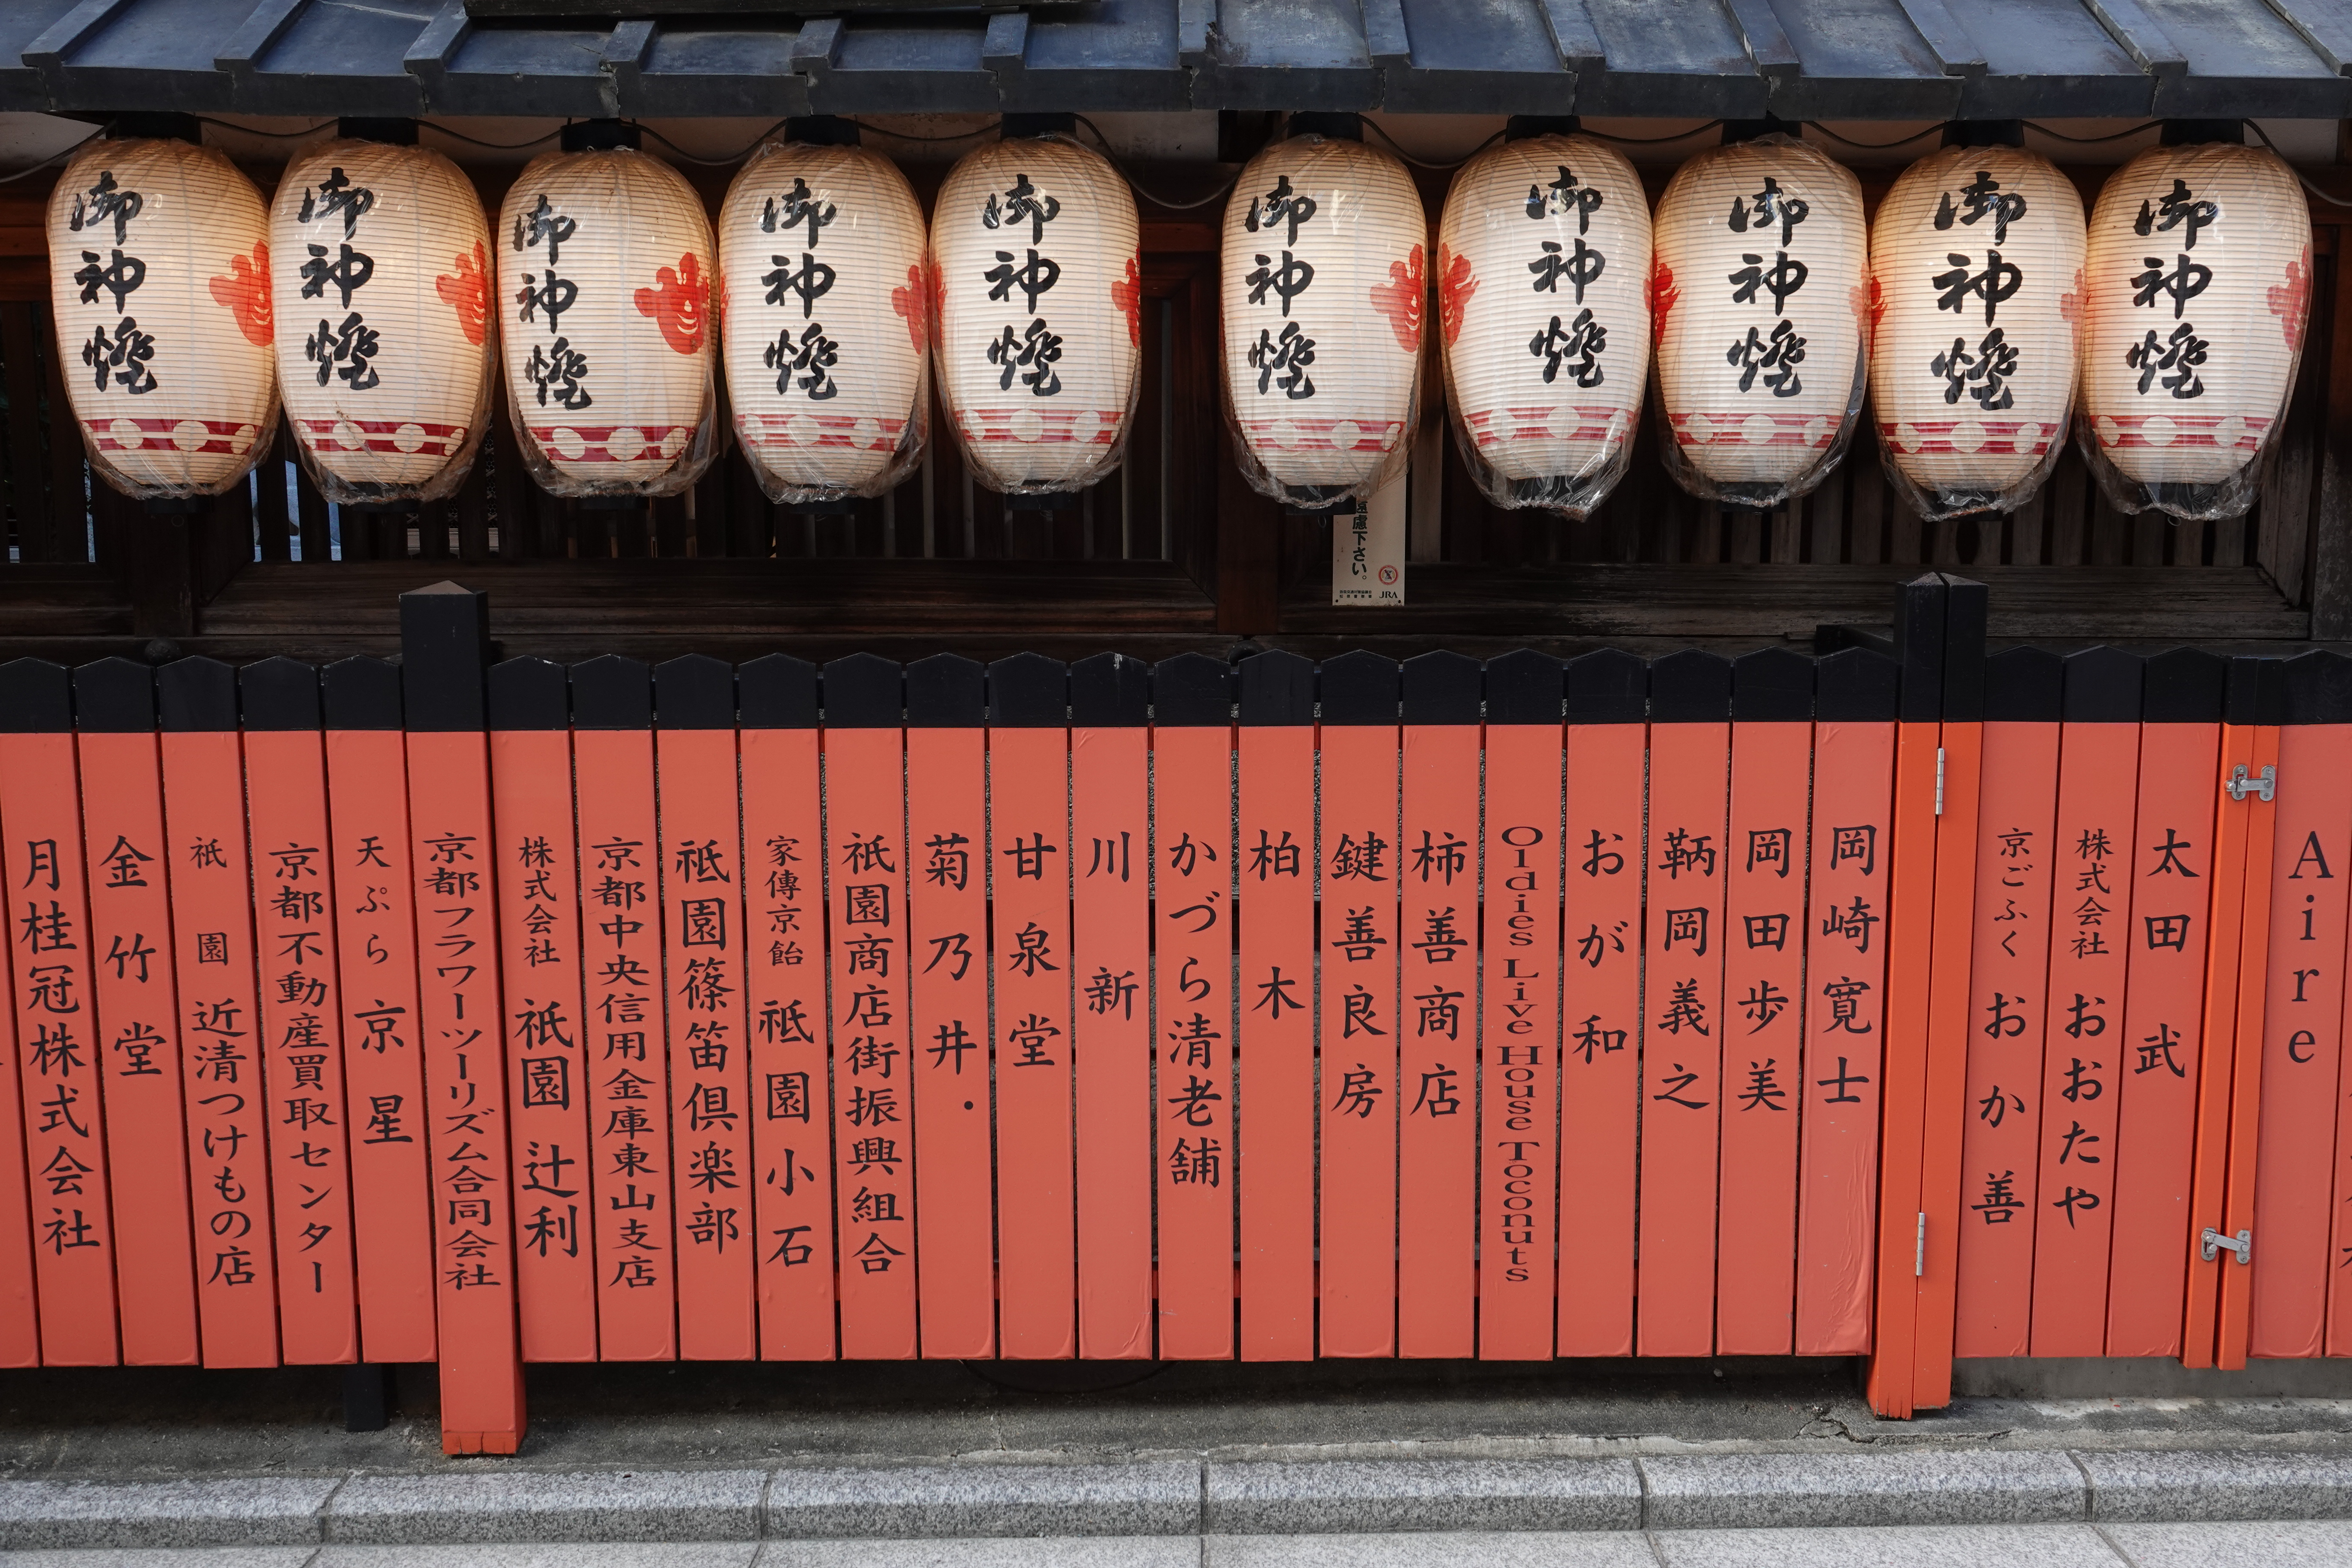 御神燈
御神燈
御神燈
御神燈
御神燈
御神燈
御神燈
御神燈
御神燈
御神燈
慮下さい。
JRA
月桂冠株式会社
金竹堂
祇園 近清つけもの店
京都不動産買取センター
天ぷら 京星
京都フラワーツーリズム合同会社
株式会社 祇園辻利
京都中央信用金庫東山支店
祇園篠笛倶楽部
家傳京飴 祇園小石
祇園商店街振興組合
菊乃井.
甘泉堂
川新
かづら清老舗
柏木
鍵善良房
柿善商店
Oldies Live House Toconuts
おが和
鞆岡義之
岡田歩美
岡崎寛士
京ごふく おか善
株式会社 おおたや
太田武
Aire